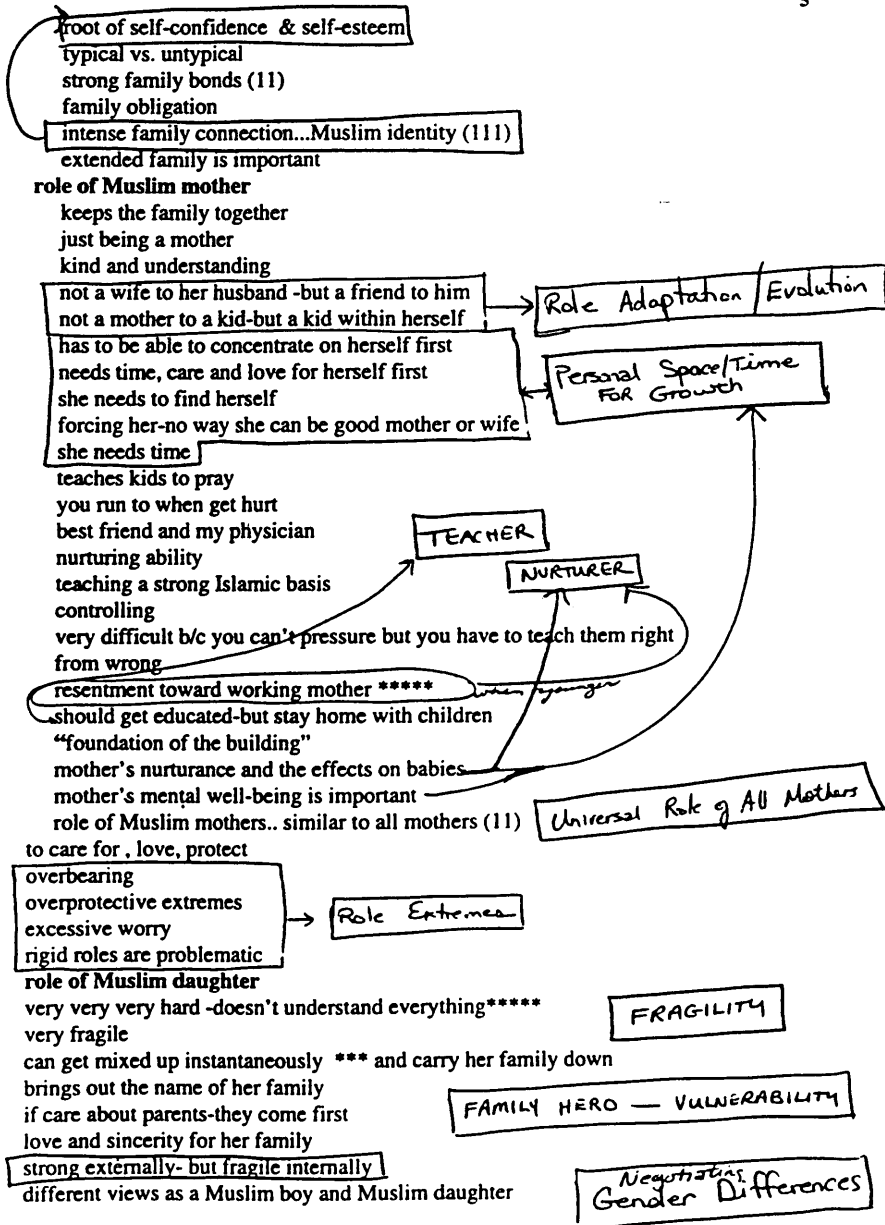 root of self-confidence & self-esteem
typical vs. untypical
strong family bonds (11)
family obligation
intense family connection...Muslim identity (111)
extended family is important
role of Muslim mother
keeps the family together
just being a mother
kind and understanding
not a wife to her husband -but a friend to him
not a mother to a kid-but a kid within herself
Role Adaptation / Evolution
has to be able to concentrate on herself first
needs time, care and love for herself first
she needs to find herself
forcing her-no way she can be good mother or wife
she needs time
Personal Space/Time
FOR Growth
teaches kids to pray
you run to when get hurt
best friend and my physician
TEACHER
nurturing ability
NURTURER
teaching a strong Islamic basis
controlling
very difficult b/c you can't pressure but you have to teach them right
from wrong
resentment toward working mother *****
when younger
should get educated-but stay home with children
"foundation of the building"
mother's nurturance and the effects on babies
mother's mental well-being is important
role of Muslim mothers.. similar to all mothers (11)
Universal Role of All Mothers
to care for , love, protect
overbearing
overprotective extremes
excessive worry
rigid roles are problematic
Role Extremes
role of Muslim daughter
very very very hard -doesn't understand everything*****
FRAGILITY
very fragile
can get mixed up instantaneously *** and carry her family down
brings out the name of her family
if care about parents-they come first
FAMILY HERO — VULNERABILITY
love and sincerity for her family
strong externally- but fragile internally
different views as a Muslim boy and Muslim daughter
Negotiating
Gender Differences